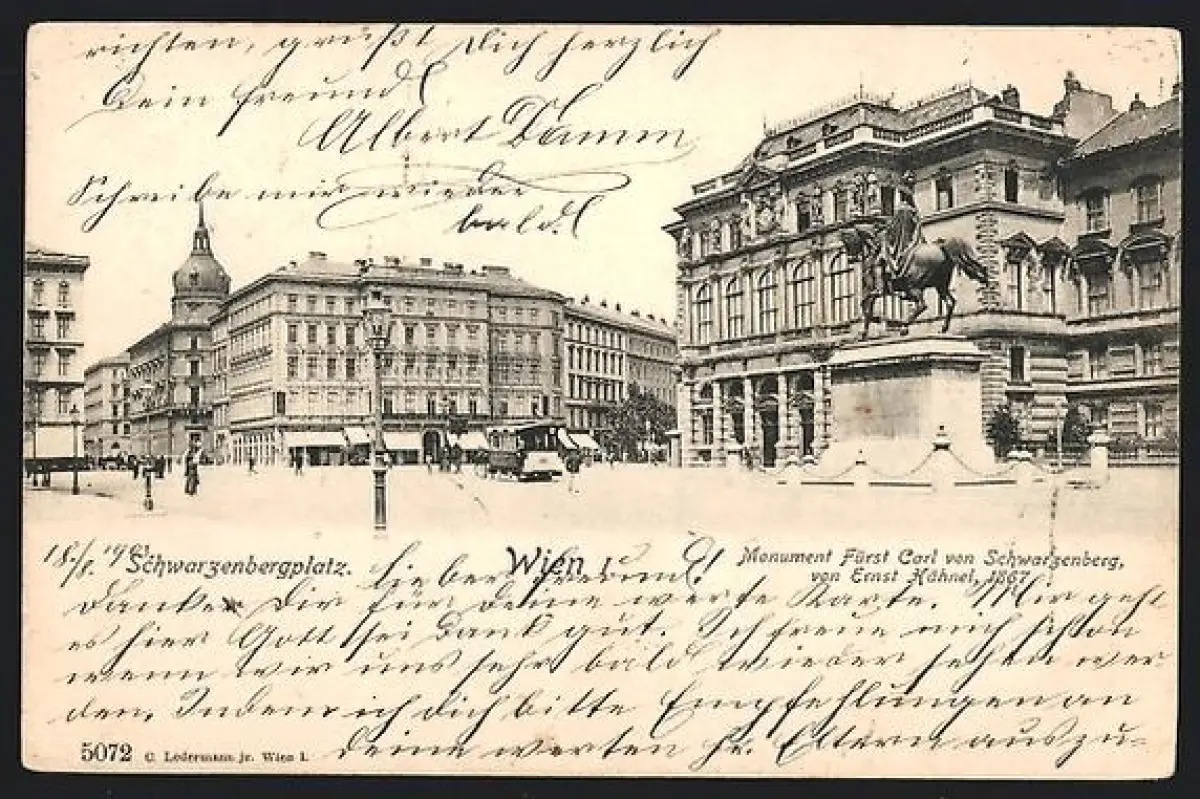 richten, grüßt Dich herzlich
Dein Freund
Albert Damm
Schreibe mir wieder
bald.
18./8. 1901
Schwarzenbergplatz.
Wien I
Monument Fürst Carl von Schwarzenberg,
von Ernst Hähnel, 1867
Lieber Freund!
Danke Dir für deine werte Karte. Mir geht
es hier Gott sei Dank gut. Ich freue mich schon
wenn wir uns sehr bald wieder sehen wer
den. Indem ich dich bitte Empfehlungen an
deine werten Hr. Eltern auszu=
5072 C. Ledermann jr. Wien I.